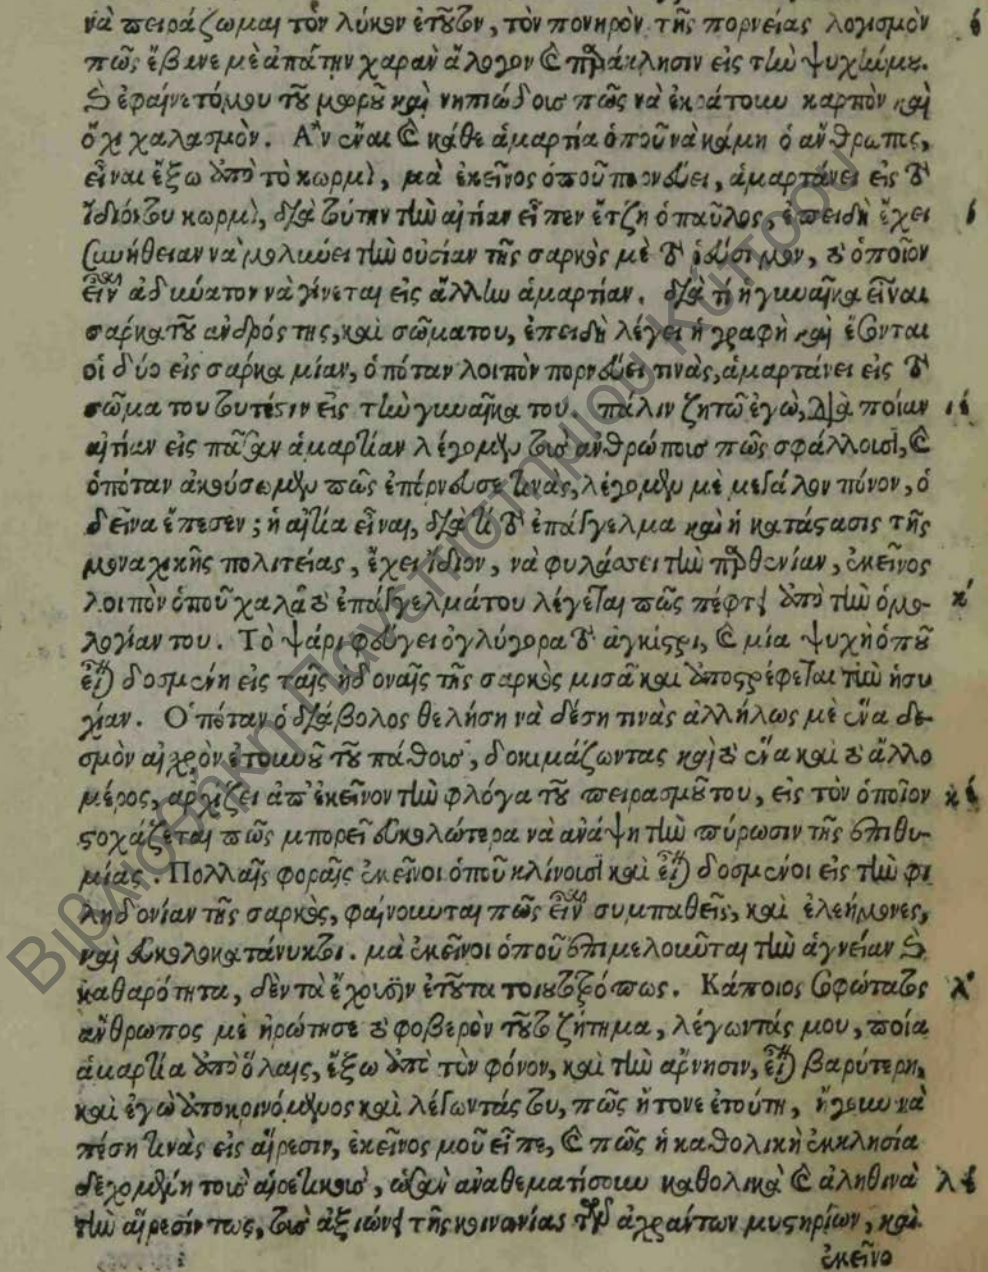 νὰ πειράζωμαι τὸν λύκον ἐτοῦτον, τὸν πονηρὸν τῆς πορνείας λογισμὸν
πῶς ἔβανε μὲ ἀπάτην χαρὰν ἄλογον καὶ παράκλησιν εἰς τὴν ψυχήν μου.
καὶ ἐφαίνετό μου τοῦ μωροῦ καὶ νηπιώδους πῶς νὰ ἐκράτουν καρπὸν καὶ
ὄχι χαλασμόν. Ἂν εἶναι καὶ κάθε ἁμαρτία ὁποῦ νὰ κάμῃ ὁ ἄνθρωπος,
εἶναι ἔξω ἀπὸ τὸ κορμὶ, μὰ ἐκεῖνος ὁποῦ πορνεύει, ἁμαρτάνει εἰς τὸ
ἴδιόν του κορμὶ, διὰ τούτην τὴν αἰτίαν εἶπεν ἔτζη ὁ παῦλος, ἐπειδὴ ἔχει
συνήθειαν νὰ μολύνει τὴν οὐσίαν τῆς σαρκὸς μὲ τὸ ῥεύσιμον, τὸ ὁποῖον
εἶναι ἀδύνατον νὰ γίνεται εἰς ἄλλην ἁμαρτίαν. διὰ τί ἡ γυναῖκα εἶναι
σάρκα τοῦ ἀνδρός της, καὶ σῶμα του, ἐπειδὴ λέγει ἡ γραφὴ καὶ ἔσονται
οἱ δύο εἰς σάρκα μίαν, ὁπόταν λοιπὸν πορνεύει τινὰς, ἁμαρτάνει εἰς τὸ
σῶμα του τουτέστιν εἰς τὴν γυναῖκα του. πάλιν ζητῶ ἐγὼ, διὰ ποίαν
αἰτίαν εἰς πᾶσαν ἁμαρτίαν λέγομεν τοὺς ἀνθρώπους πῶς σφάλλουσι, καὶ
ὁπόταν ἀκούσωμεν πῶς ἐπόρνευσε τινὰς, λέγομεν μὲ μεγάλον πόνον, ὁ
δεῖνα ἔπεσεν; ἡ αἰτία εἶναι, διὰ τὶ τὸ ἐπάγγελμα καὶ ἡ κατάστασις τῆς
μοναχικῆς πολιτείας, ἔχει ἴδιον, νὰ φυλάσσει τὴν παρθενίαν, ἐκεῖνος
λοιπὸν ὁποῦ χαλᾶ τὸ ἐπάγγελμά του λέγεται πῶς πέφτει ἀπὸ τὴν ὁμο-
λογίαν του. Τὸ ψάρι φεύγει ὀγλύγορα τὸ ἀγκίστρι, καὶ μία ψυχὴ ὁποῦ
εἶναι δοσμένη εἰς ταῖς ἡδοναῖς τῆς σαρκὸς μισᾶ καὶ ἀποστρέφεται τὴν ἡσυ
χίαν. Ὁπόταν ὁ διάβολος θελήσῃ νὰ δέσῃ τινὰς ἀλλήλως μὲ ἕνα δε-
σμὸν αἰσχρὸν ἐτουνοῦ τοῦ πάθους, δοκιμάζωντας καὶ τὸ ἕνα καὶ τὸ ἄλλο
μέρος, ἀρχίζει ἀπ' ἐκεῖνον τὴν φλόγα τοῦ πειρασμοῦ του, εἰς τὸν ὁποῖον
στοχάζεται πῶς μπορεῖ εὐκολώτερα νὰ ἀνάψῃ τὴν πύρωσιν τῆς ἐπιθυ-
μίας. Πολλαῖς φοραῖς ἐκεῖνοι ὁποῦ κλίνουσι καὶ εἶναι δοσμένοι εἰς τὴν φι
ληδονίαν τῆς σαρκὸς, φαίνουνται πῶς εἶναι συμπαθεῖς, καὶ ἐλεήμονες,
καὶ εὐκολοκατάνυκτοι. μὰ ἐκεῖνοι ὁποῦ ἐπιμελοῦνται τὴν ἁγνείαν καὶ
καθαρότητα, δὲν τὰ ἔχουσιν ἐτοῦτα τοιουτοτρόπως. Κάποιος σοφώτατος
ἄνθρωπος μὲ ἠρώτησε τὸ φοβερὸν τοῦτο ζήτημα, λέγωντάς μου, ποία
ἁμαρτία ἀπὸ ὅλαις, ἔξω ἀπὸ τὸν φόνον, καὶ τὴν ἄρνησιν, εἶναι βαρύτερη,
καὶ ἐγὼ ἀποκρινόμενος καὶ λέγωντάς του, πῶς ἤτονε ἐτούτη, ἤγουν νὰ
πέσῃ τινὰς εἰς αἵρεσιν, ἐκεῖνος μοῦ εἶπε, καὶ πῶς ἡ καθολικὴ ἐκκλησία
δεχομένη τοὺς αἱρετικοὺς, ὡσὰν ἀναθεματίσουν καθολικὰ καὶ ἀληθινὰ
τὴν αἵρεσίν τως, τοὺς ἀξιώνει τῆς κοινωνίας τῶν ἀχράντων μυστηρίων, καὶ
ἐκεῖνο
ϛ́
ί
ιέ
κ́
κέ
λ́
λέ
Βιβλιοθήκη Πανεπιστημίου Κύπρου